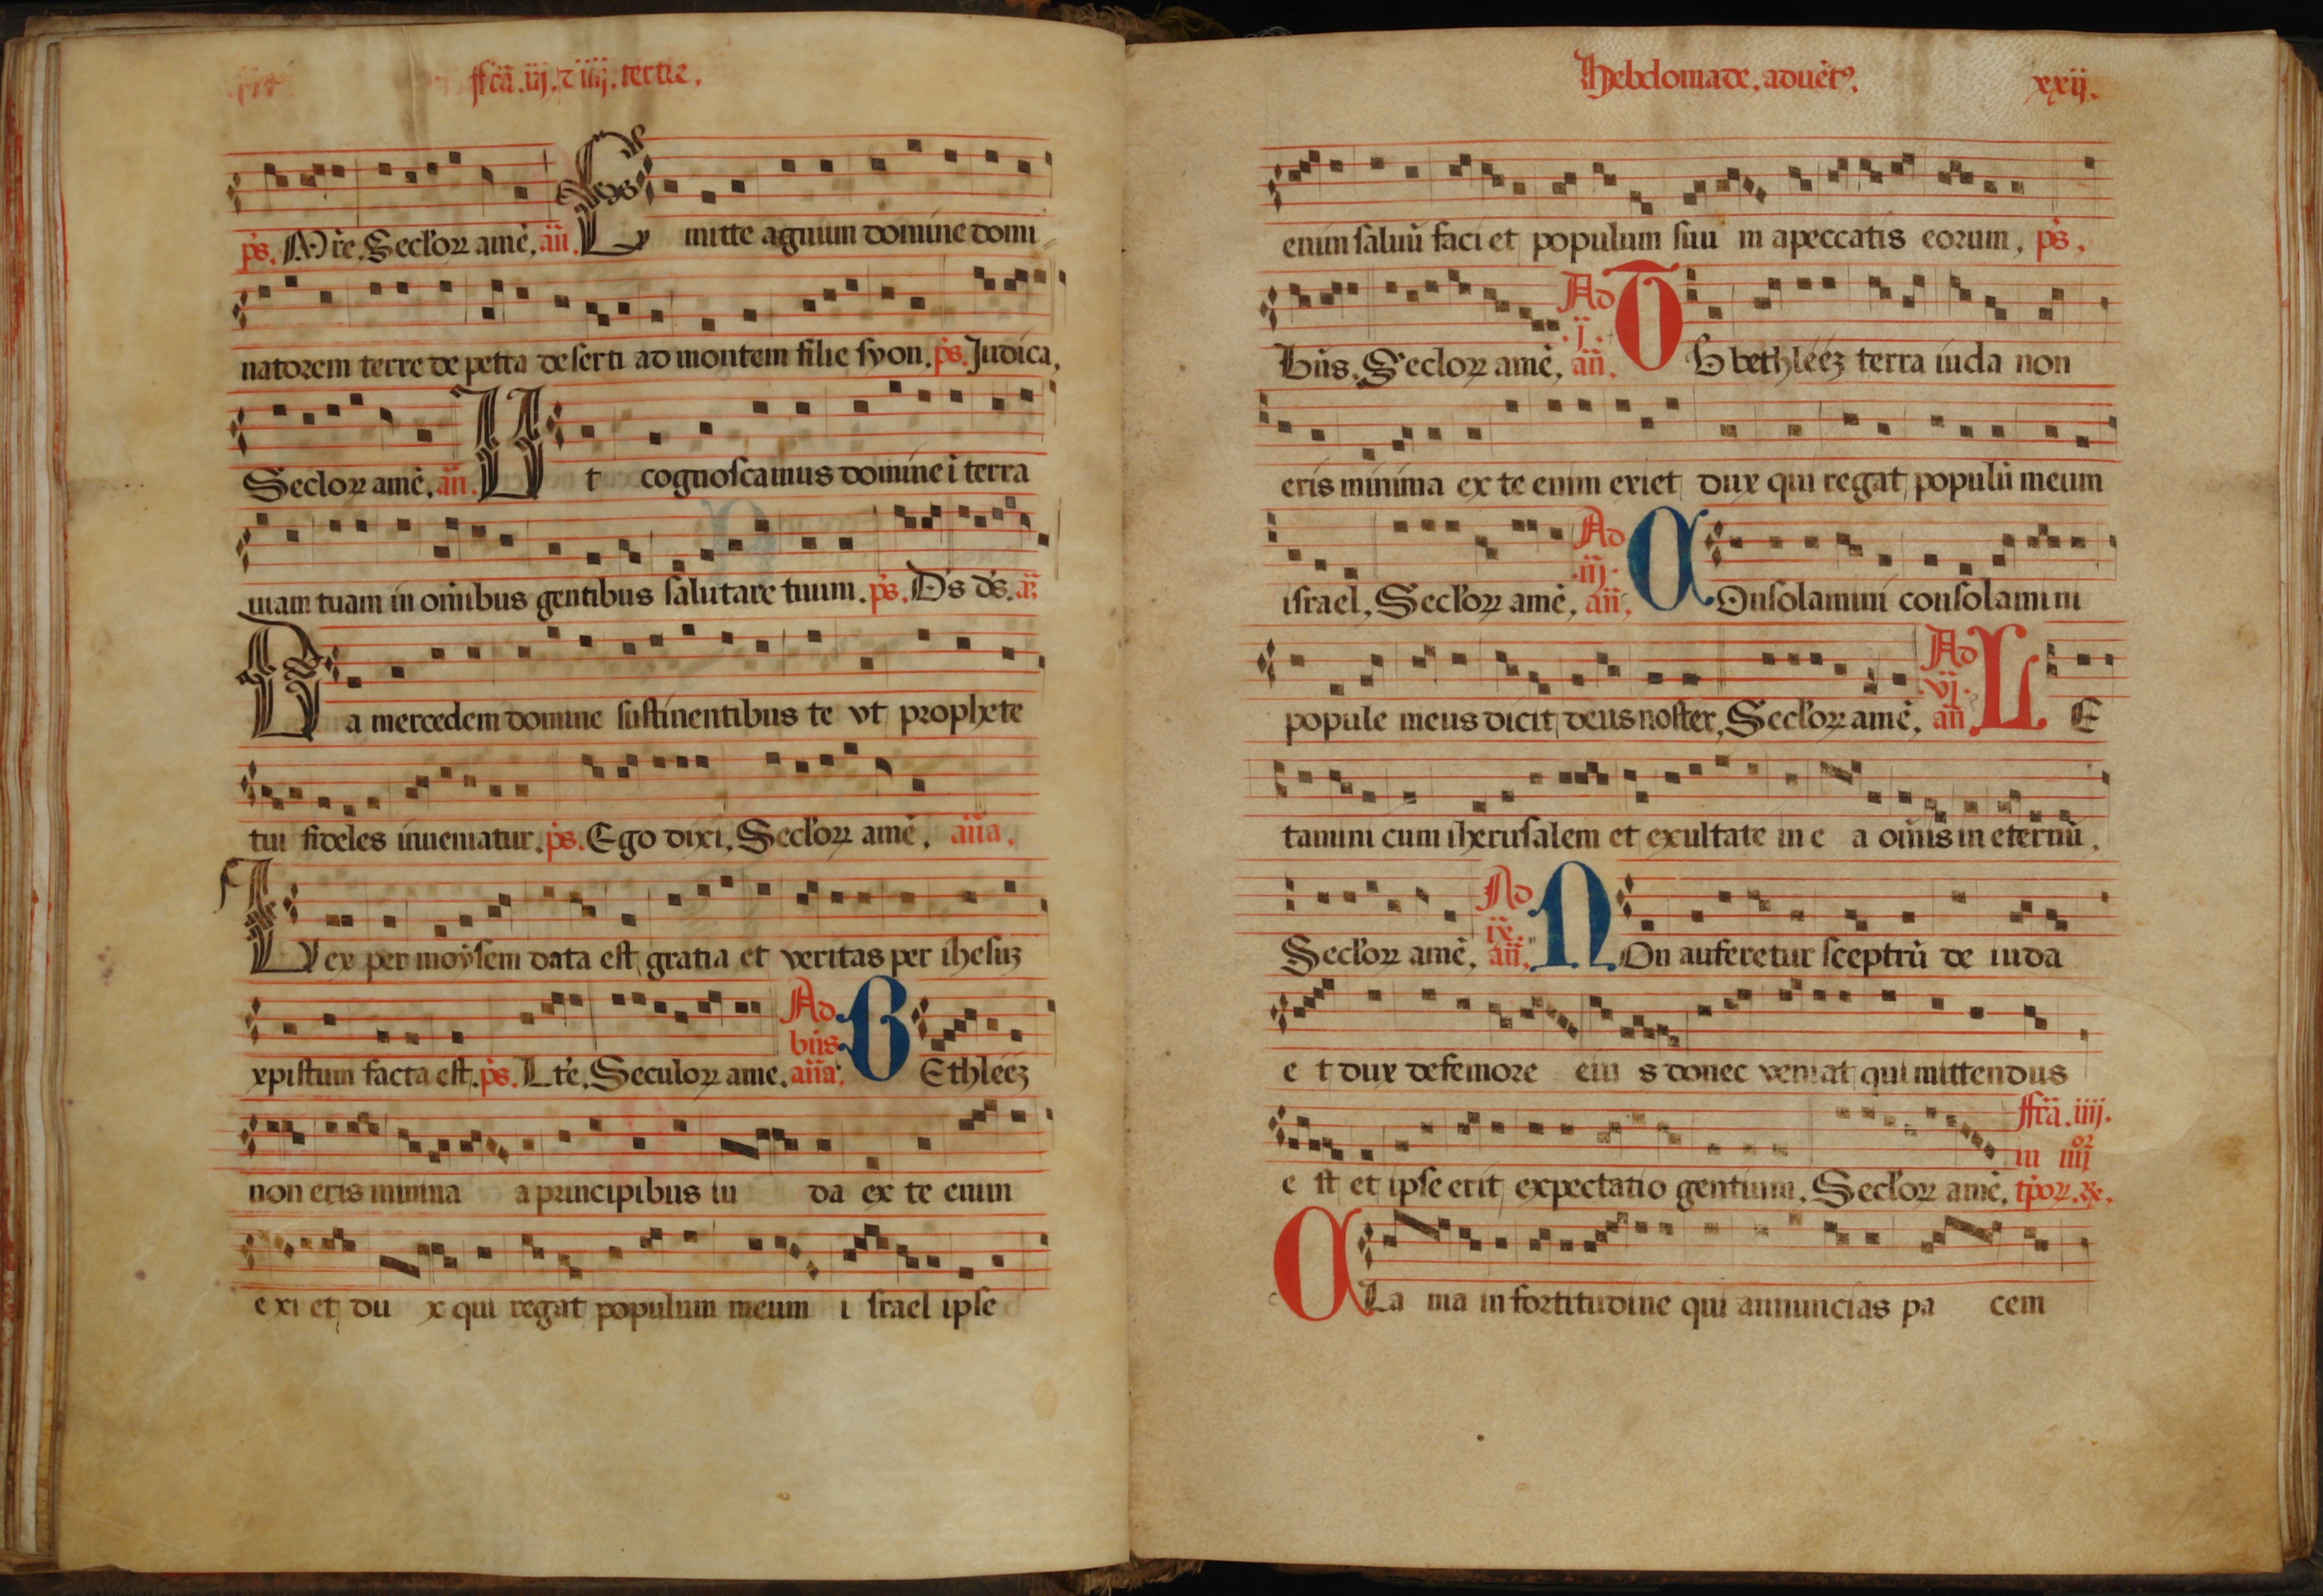 ffrã .iij. ⁊ iiij. tertie.
ps. M̃re. Secl'oꝝ amẽ. añ. E mitte agnum domine domi
natorem terre de petra deserti ad montem filie syon. ps. Judica,
Secloꝝ amẽ. añ. U t cognoscamus domine ĩ terra
uiam tuam in om̃ibus gentibus salutare tuum. ps. D's ds. añ
D a mercedem domine sustinentibus te vt prophete
tui fideles inueniatur. ps. Ego dixi. Secl'oꝝ amẽ. aña.
L ex per moysem data est gratia et veritas per ihesuz
xpistum facta est. ps. Lt'e. Seculoꝝ ame. Ad bñs aña. B Ethleez
non eris minima a principibus iu da ex te enim
exi et du x qui regat populum meum i srael ipse
Hebdomade. aduẽt9. xxij.
enim saluũ faci et populum suu m apeccatis eorum. ps.
Bñs. Secloꝝ amẽ. Ad .j. añ. T U bethleez terra iuda non
eris minima ex te enim exiet dux qui regat populũ meum
israel. Secl'oꝝ amẽ. Ad .iij. añ. C Onsolamini consolamini
popule meus dicit deus noster. Secl'oꝝ amẽ. Ad vj. añ. L E
tamini cum iherusalem et exultate in e a om̃is in eternũ.
Secl'oꝝ amẽ. Ad ix. añ. N On auferetur sceptrũ de iuda
e t dux defemore eiu s donec veniat qui mittendus
e st et ipse erit expectatio gentium. Secl'oꝝ amẽ. ffrã .iiij. in iiijor tp̃oꝝ. &c.
C La ma in fortitudine qui annuncias pa cem